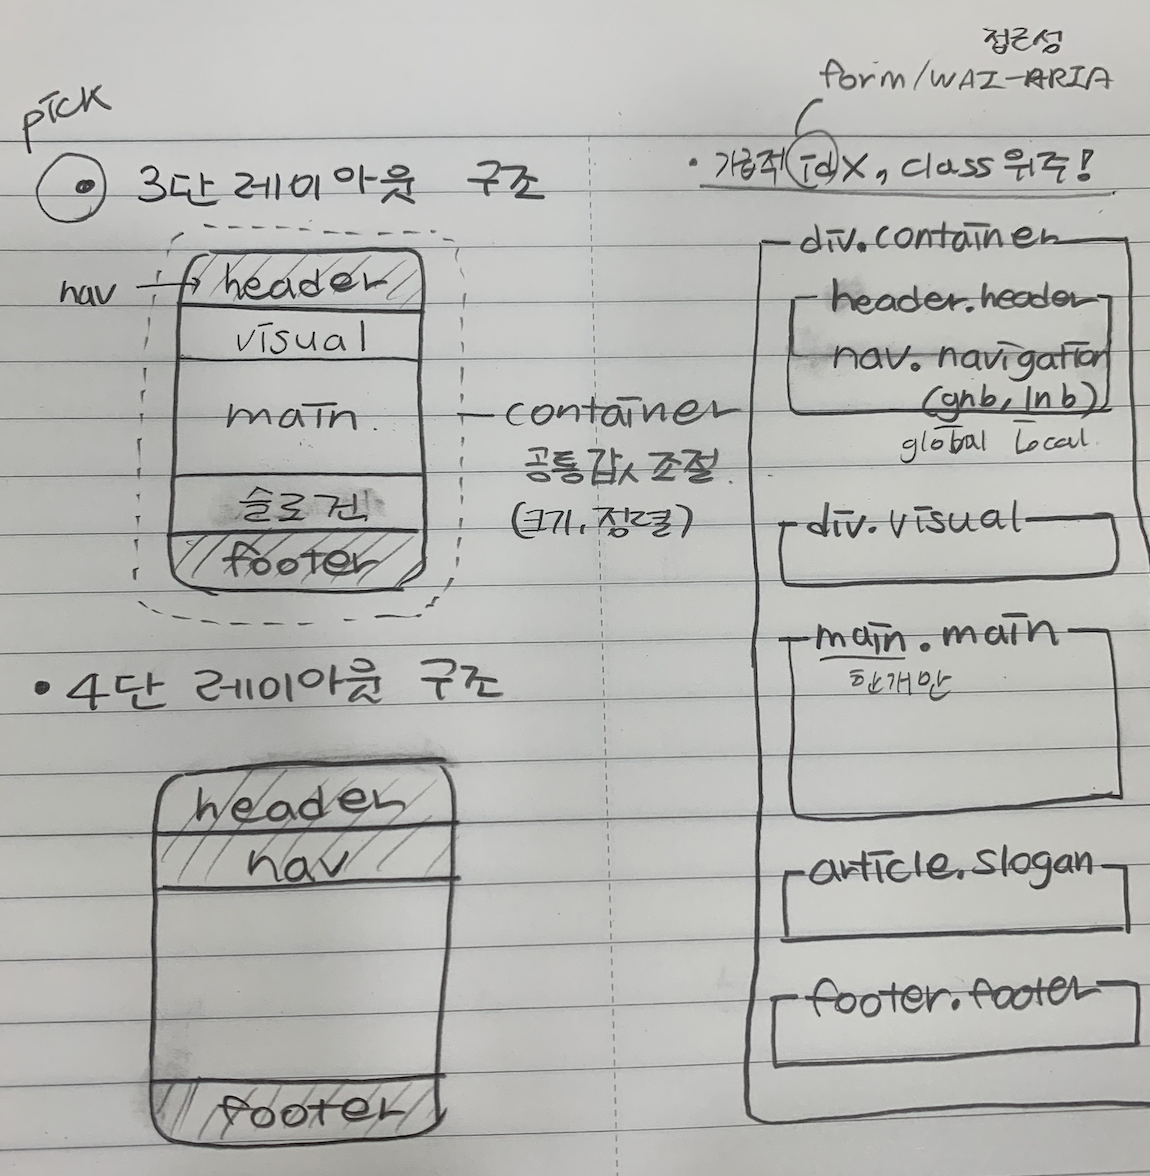 pick
3단 레이아웃 구조
nav
header
visual
main
슬로건
footer
container
공통값 조절
(크기, 정렬)
4단 레이아웃 구조
header
nav
footer
접근성
form/WAI-ARIA
가급적 id X, class 위주!
div.container
header.header
nav. navigation
(gnb, lnb)
global local
div.visual
main.main
한개만
article.slogan
footer.footer